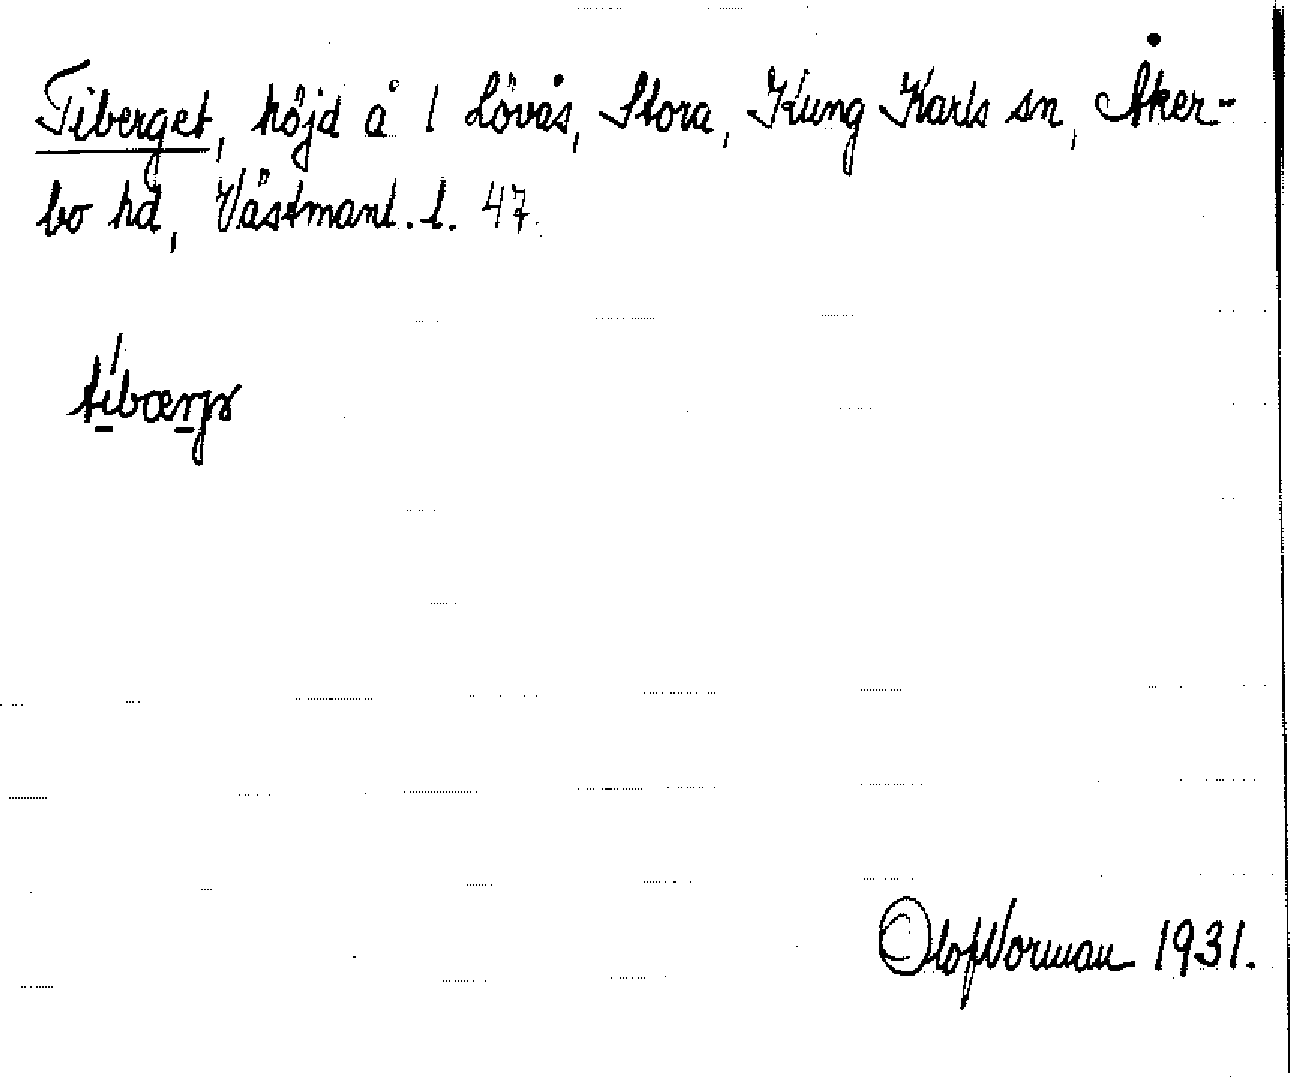 Tiberget, höjd å 1 Lövås, Stora, Kung Karls sn, Åker-
bo hd, Västmanl. l. 47.
Olof Norman 1931.